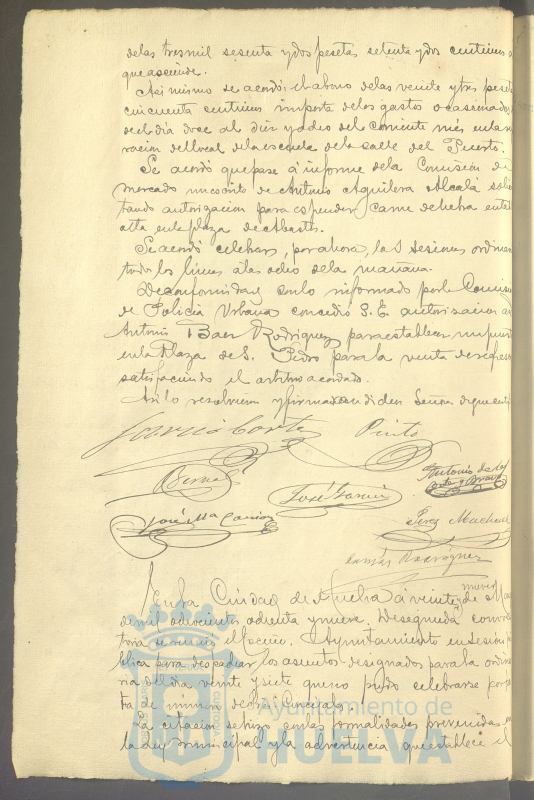 de las tres mil sesenta y dos pesetas setenta y dos centimos a
que asciende.
Asi mismo se acordó el abono de las veinte y tres peseta
cincuenta centimos importe de los gastos ocasionados
desde el dia doce al diez y ocho del corriente mes en la
racion del local de la escuela de la calle del Puerto.
Se acordó que pase á informe de la Comision de
mercado un escrito de Antonio Aguilera Alcalá soli
tando autorizacion para espender carne de hebra en ta
alta en la plaza de Abastos.
Se acordó celebrar, por ahora, las sesiones ordinar
todos los lúnes á las ocho de la mañana.
De conformidad con lo informado por la Comisio
de Policia Urbana concedió S. E. autorizacion a
Antonio Baer Rodriguez para establecer un puest
en la Plaza de S. Pedro para la venta de refres
satisfaciendo el arbitrio acordado.
Asi lo resolvieron y firman
García Cortés Pinto
Bernal José García Antonio de la
José Mª Perez Machado
Tomás Rodriguez
nueve
En la Ciudad de Huelva á veinte y de Ma
de mil ochocientos ochenta y nueve
toria se reunió el Excmo. Ayuntamiento en sesion pu
blica para despachar los asuntos designados para la ordina
ria del dia veinte y siete que no pudo celebrarse por fa
ta de número de Sres. Concejales.
La citacion se hizo con las formalidades prevenidas en
la ley municipal y la advertencia que establece el
Ayuntamiento de
HUELVA